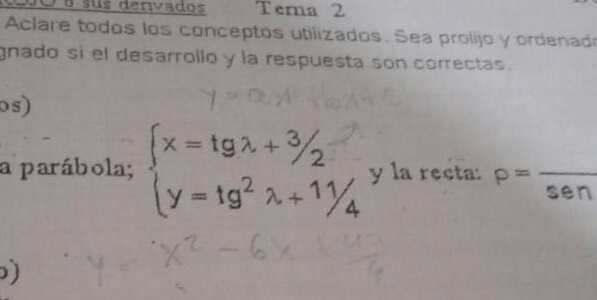 sus derivados Tema 2
Aclare todos los conceptos utilizados. Sea prolijo y ordenado
gnado si el desarrollo y la respuesta son correctas.
os)
a parábola; { x = tg λ + 3/2
{ y = tg² λ + 11/4 y la recta: ρ = ―――
sen
x² - 6x +